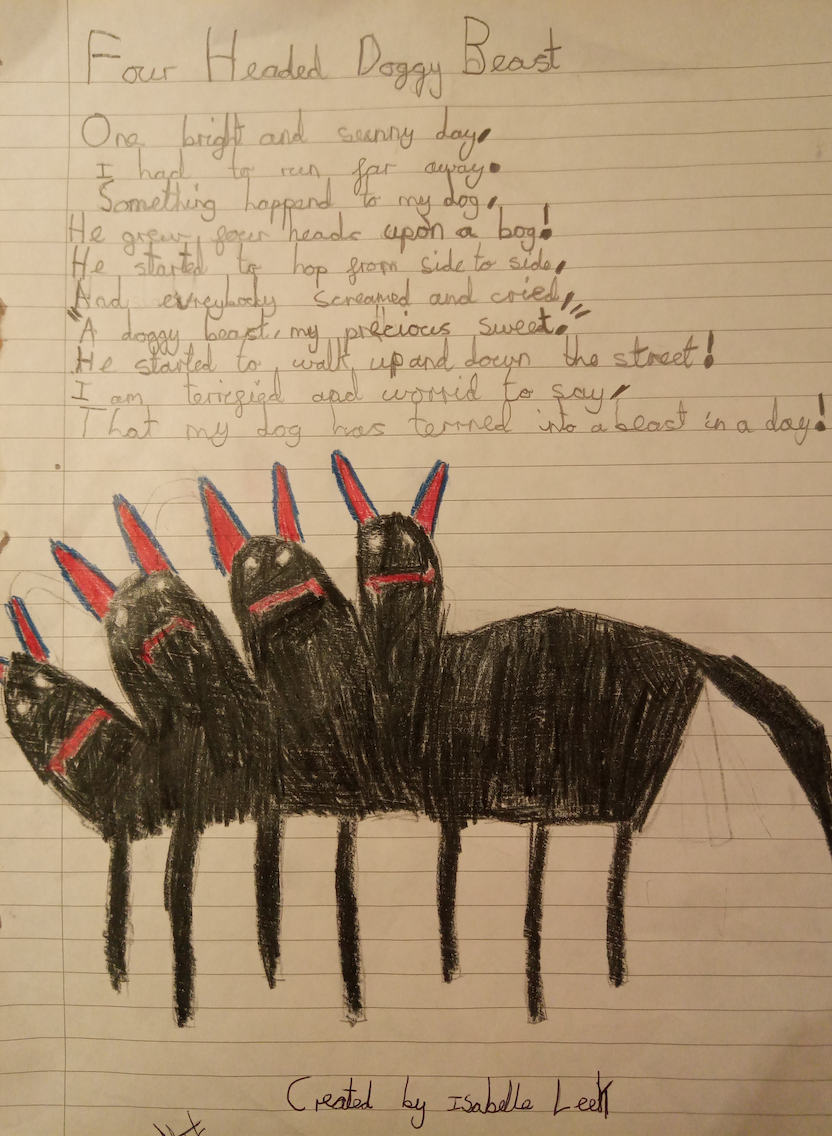 Four Headed Doggy Beast
One bright and sunny day,
I had to run far away.
Something happend to my dog,
He grew four heads upon a bog!
He started to hop from side to side,
And evreybody screamed and cried,
"A doggy beast, my precious sweet."
He started to walk up and down the street!
I am terrified and worrid to say,
That my dog has terned into a beast in a day!
Created by Isabelle Leek